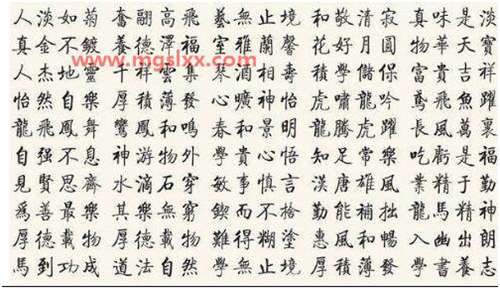 人淡如菊奮翮高飛藝無止境和敬清寂真味是淡
真金不鍍養德澤福室雅蘭馨花好月圓物華天寶
www.mgslxx.com
人杰地靈千祥雲集琴酒相壽積學儲保富貴吉祥
怡然自樂厚積薄發心曠神怡虎嘯龍吟鳶飛魚躍
龍飛鳳舞鸞鳳和鳴春和景明龍騰虎躍長風萬裏
自強不息神游物外學貴心悟知足常樂吃虧是福
見賢思齊水滴石穿敏事慎言漢唐雄風業精于勤
爲善最樂其樂無窮鍥而不捨勤能補拙龍馬精神
厚德載物厚德載物難得糊塗惠風和暢入幽出朗
馬到功成道法自然學無止境厚積薄發學書養志